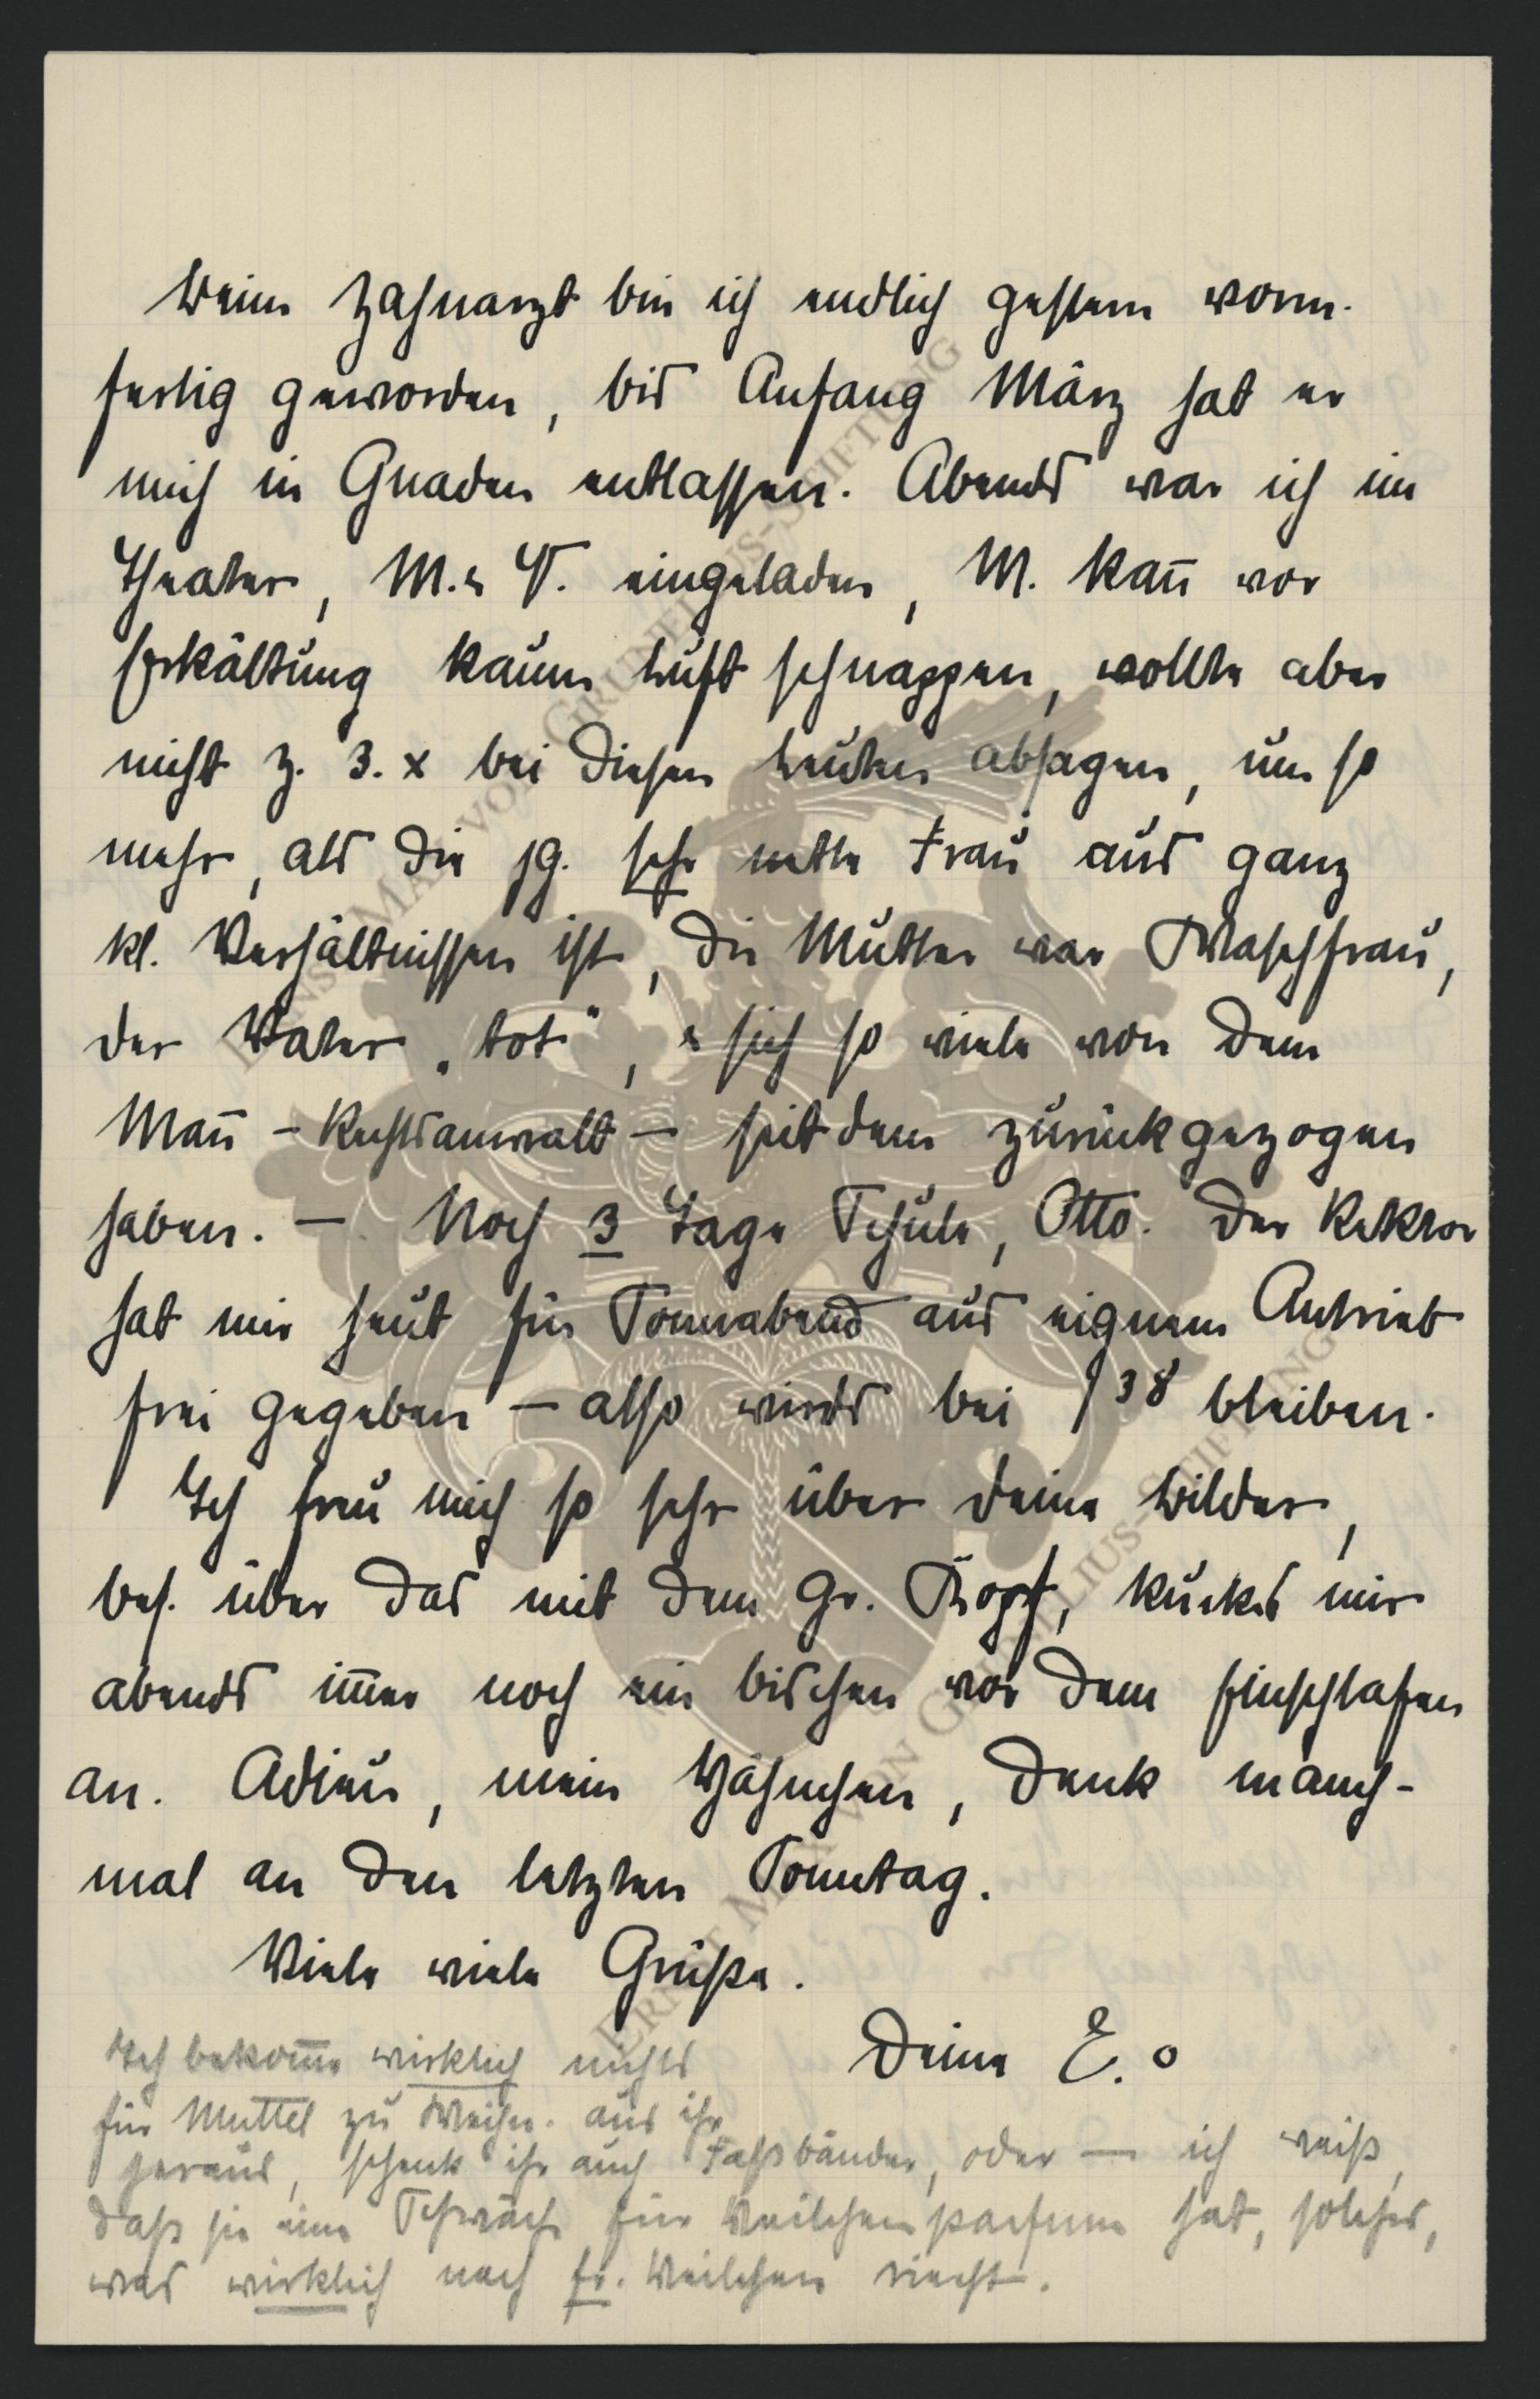 Beim Zahnarzt bin ich endlich gestern vorm.
fertig geworden, bis Anfang März hat er
mich in Gnaden entlassen. Abends war ich im
Theater, M. u. V. eingeladen, M. kan̄ vor
Erkältung kaum Luft schnappen, wollte aber
nicht z. 3. x bei diesen Leuten absagen, um so
mehr, als die jg. sehr nette Frau aus ganz
kl. Verhältnissen ist, die Mutter war Waschfrau,
der Vater „tot“, u. sich so viele von dem
Man̄ – Rechtsanwalt – seitdem zurückgezogen
haben. – Noch 3 Tage Schule, Otto. Der Rektor
hat mir heut für Sonnabend aus eignem Antrieb
frei gegeben – also wirds bei 138 bleiben.
Ich freu mich so sehr über deine Bilder,
bes. über das mit dem gr. Kopf, kucks mir
abends im̄er noch ein bischen vor dem Einschlafen
an. Adieu, mein Hähnchen, denk manch-
mal an den letzten Sonntag.
Viele viele Grüße.
Deine E. o
Ich bekom̄e wirklich nichts
für Muttel zu Weihn. aus ihr
heraus, schenk ihr auch Faßbänder, oder – ich weiß,
daß sie eine Schwäche für Veilchenparfum hat, solches,
was wirklich nach fr. Veilchen riecht.
ERNST MAX VON GRUNELIUS-STIFTUNG
ERNST MAX VON GRUNELIUS-STIFTUNG